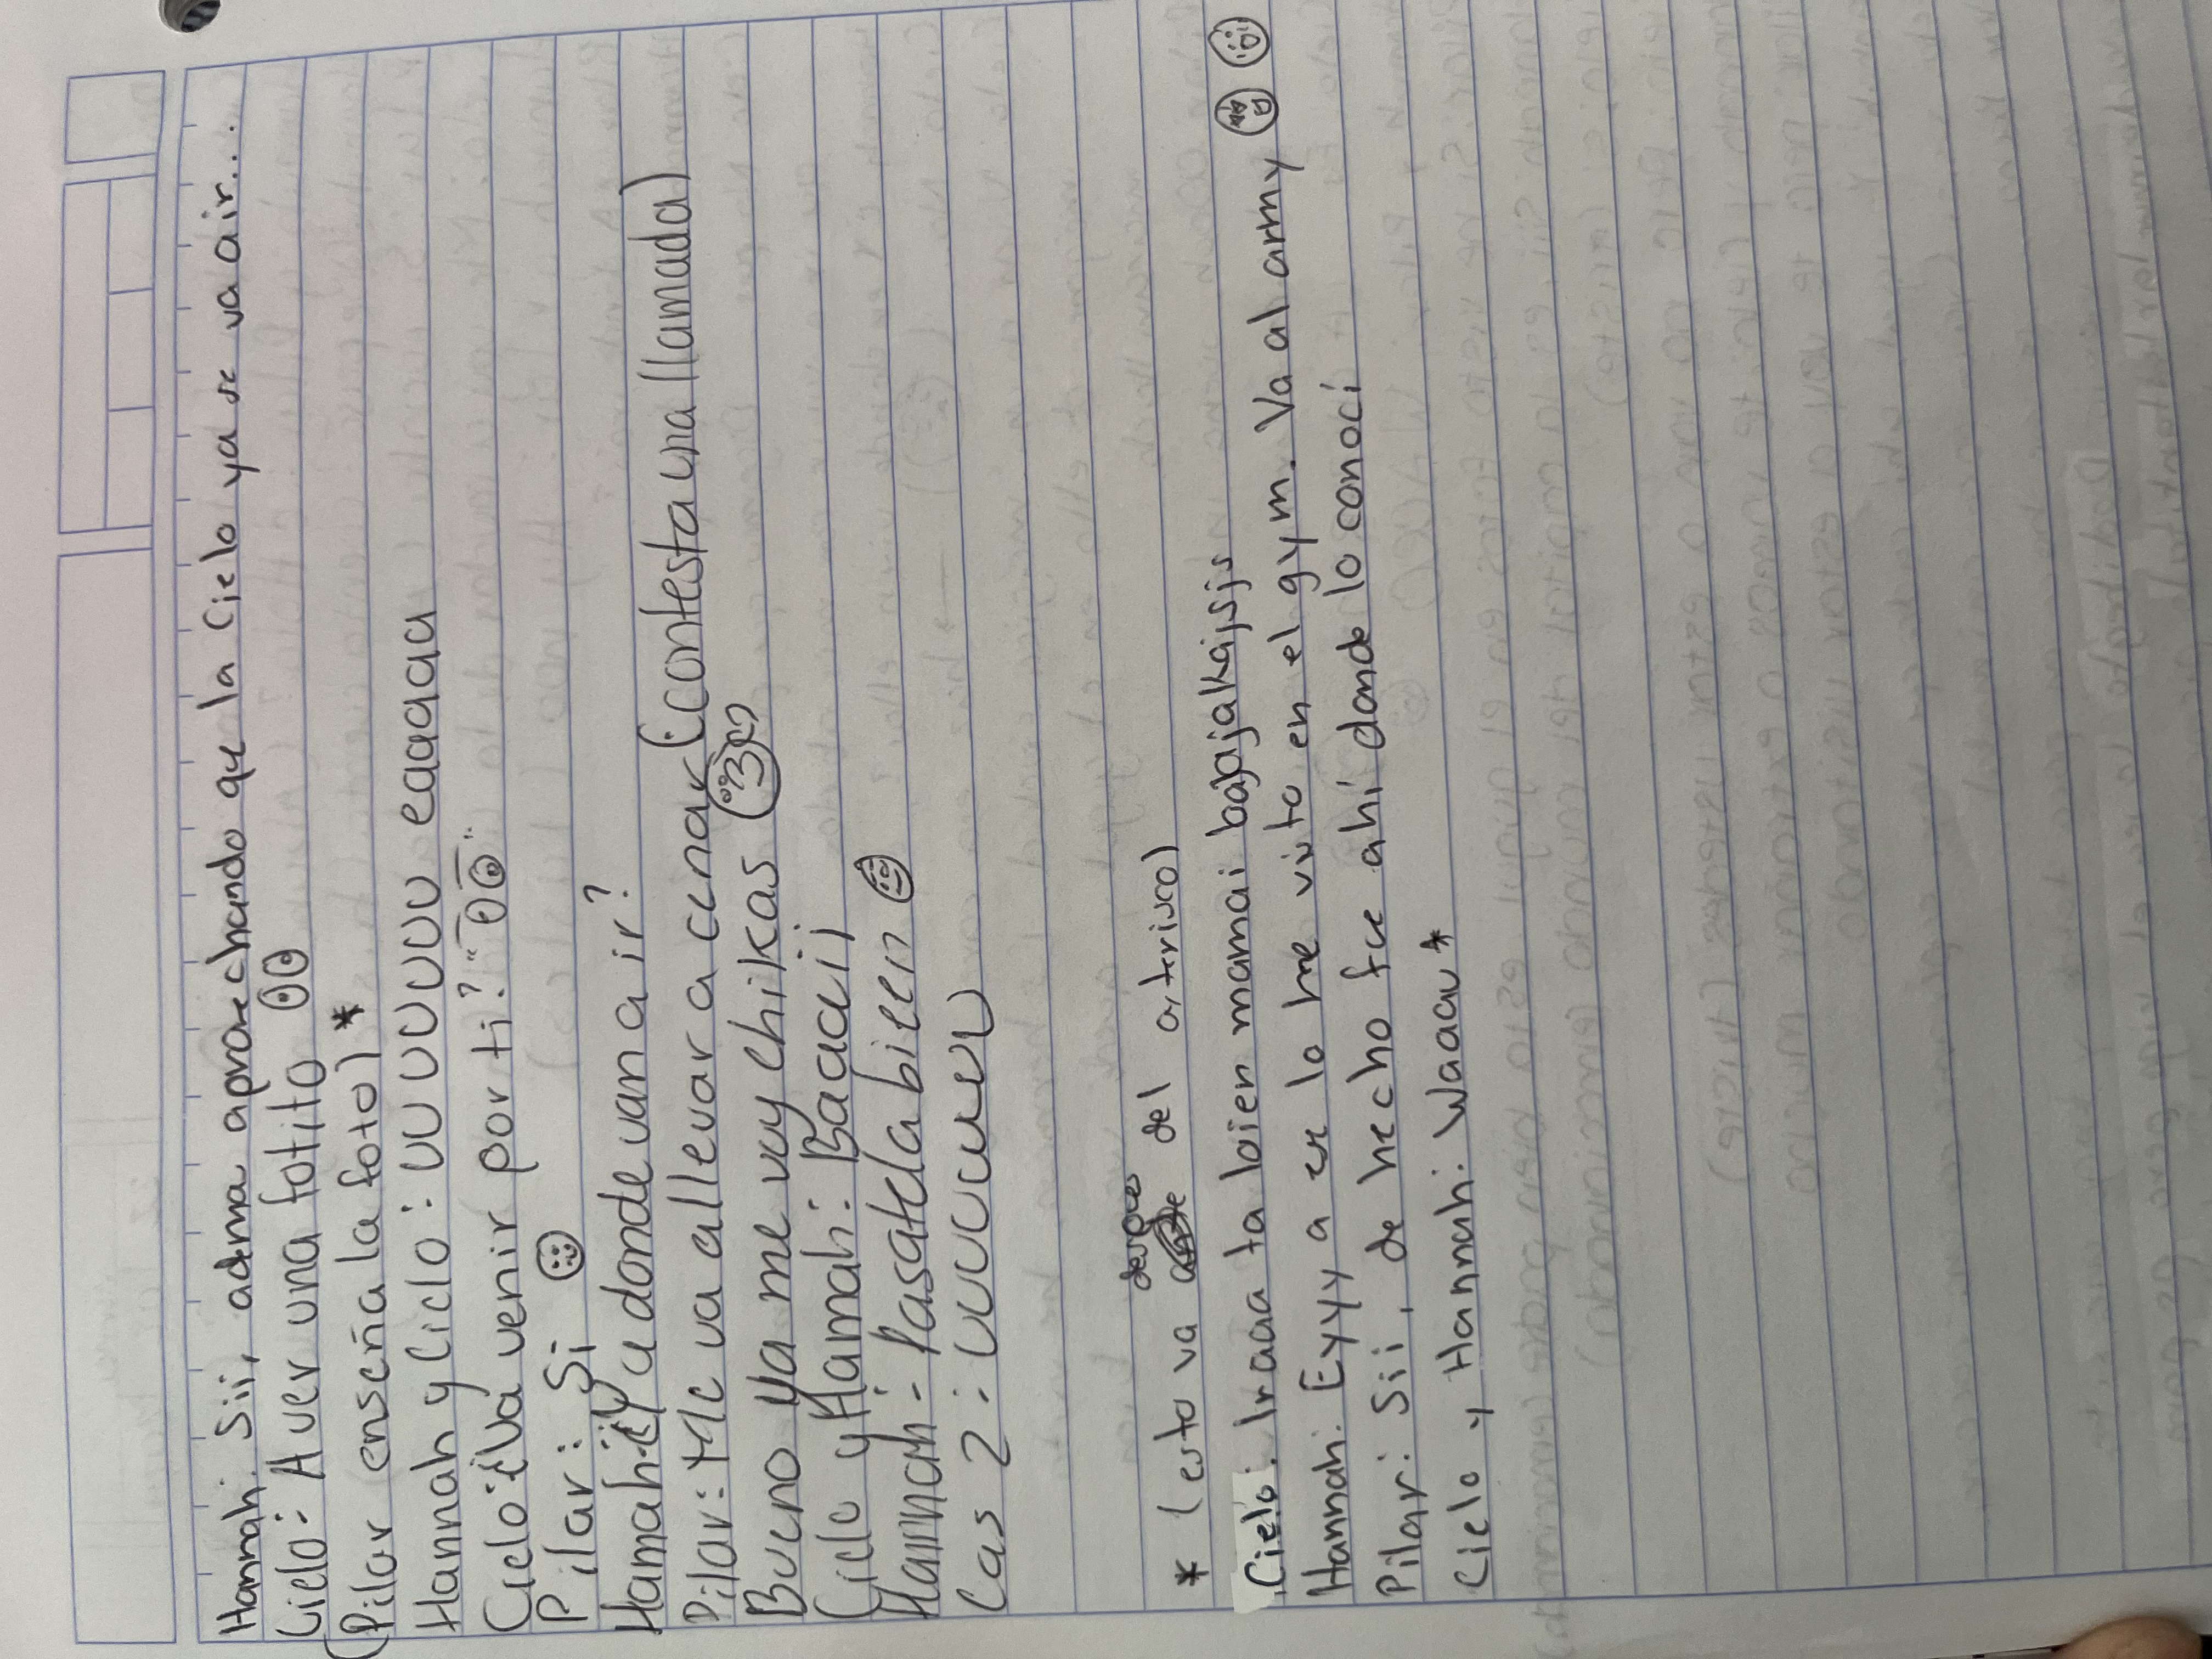 Hannah: Sii, adma aprovechando que la Cielo ya se va a ir...
Cielo: A ver una fotito
(Pilar enseña la foto) *
Hannah y Cielo: uu uuuuuu eaaaaa
Cielo: ¿Va venir por ti?
Pilar: Si
Hannah: ¿Y a donde van a ir?
Pilar: Me va allevar a cenar (contesta una llamada)
Bueno ya me voy chikas
Cielo y Hannah:
Hannah: Pasatela bieen
Las 2: uuuuuuu
* (esto va despues del asterisco)
Cielo: Iraaa ta bien mamai
Hannah: Eyyy a se lo he visto en el gym. Va al army
Pilar: Sii, de hecho fue ahi donde lo conoci
Cielo y Hannah: Waaau*